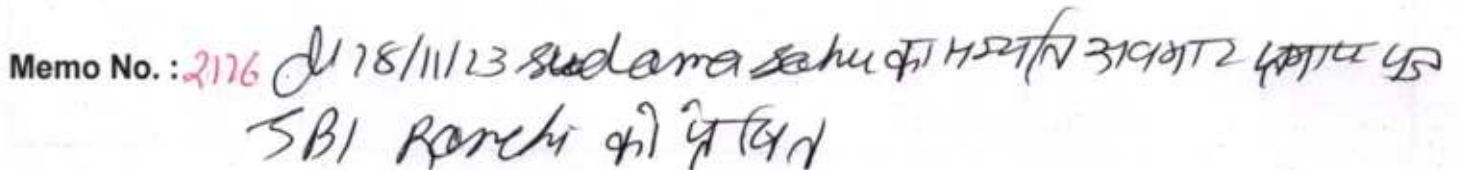 Memo No. : 2176 dt 28/11/23 sudama sahu का सत्यापित अवतार प्रमाण पत्र
SBI Ranchi को प्रेषित